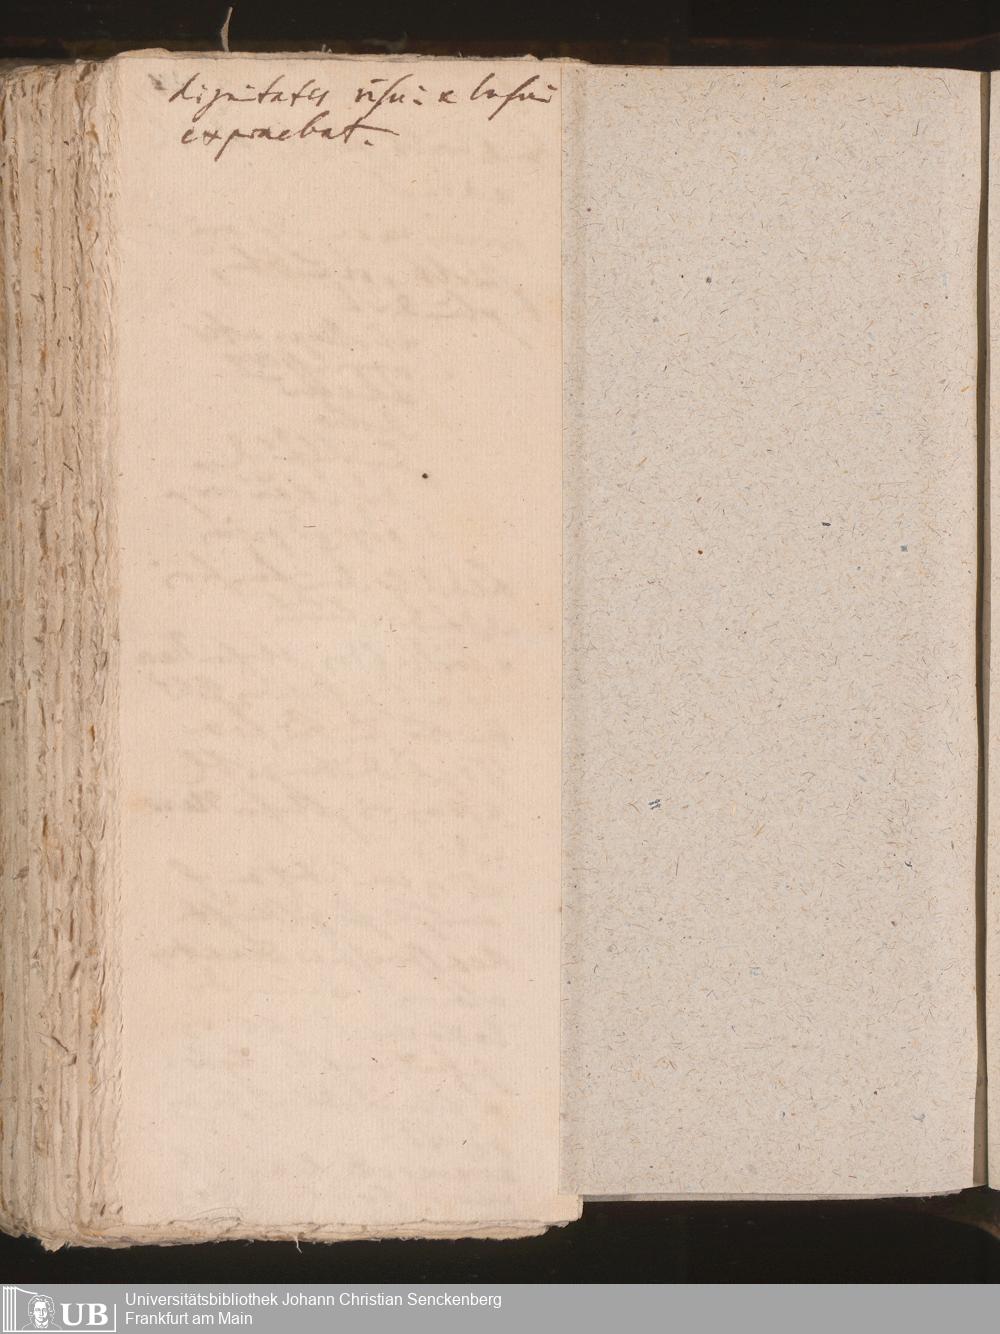 dignitates risui & lusui
expraebat.
UB
Universitätsbibliothek Johann Christian Senckenberg
Frankfurt am Main